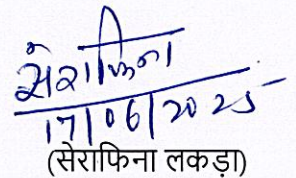 सेराफिना
17/06/2025
(सेराफिना लकड़ा)